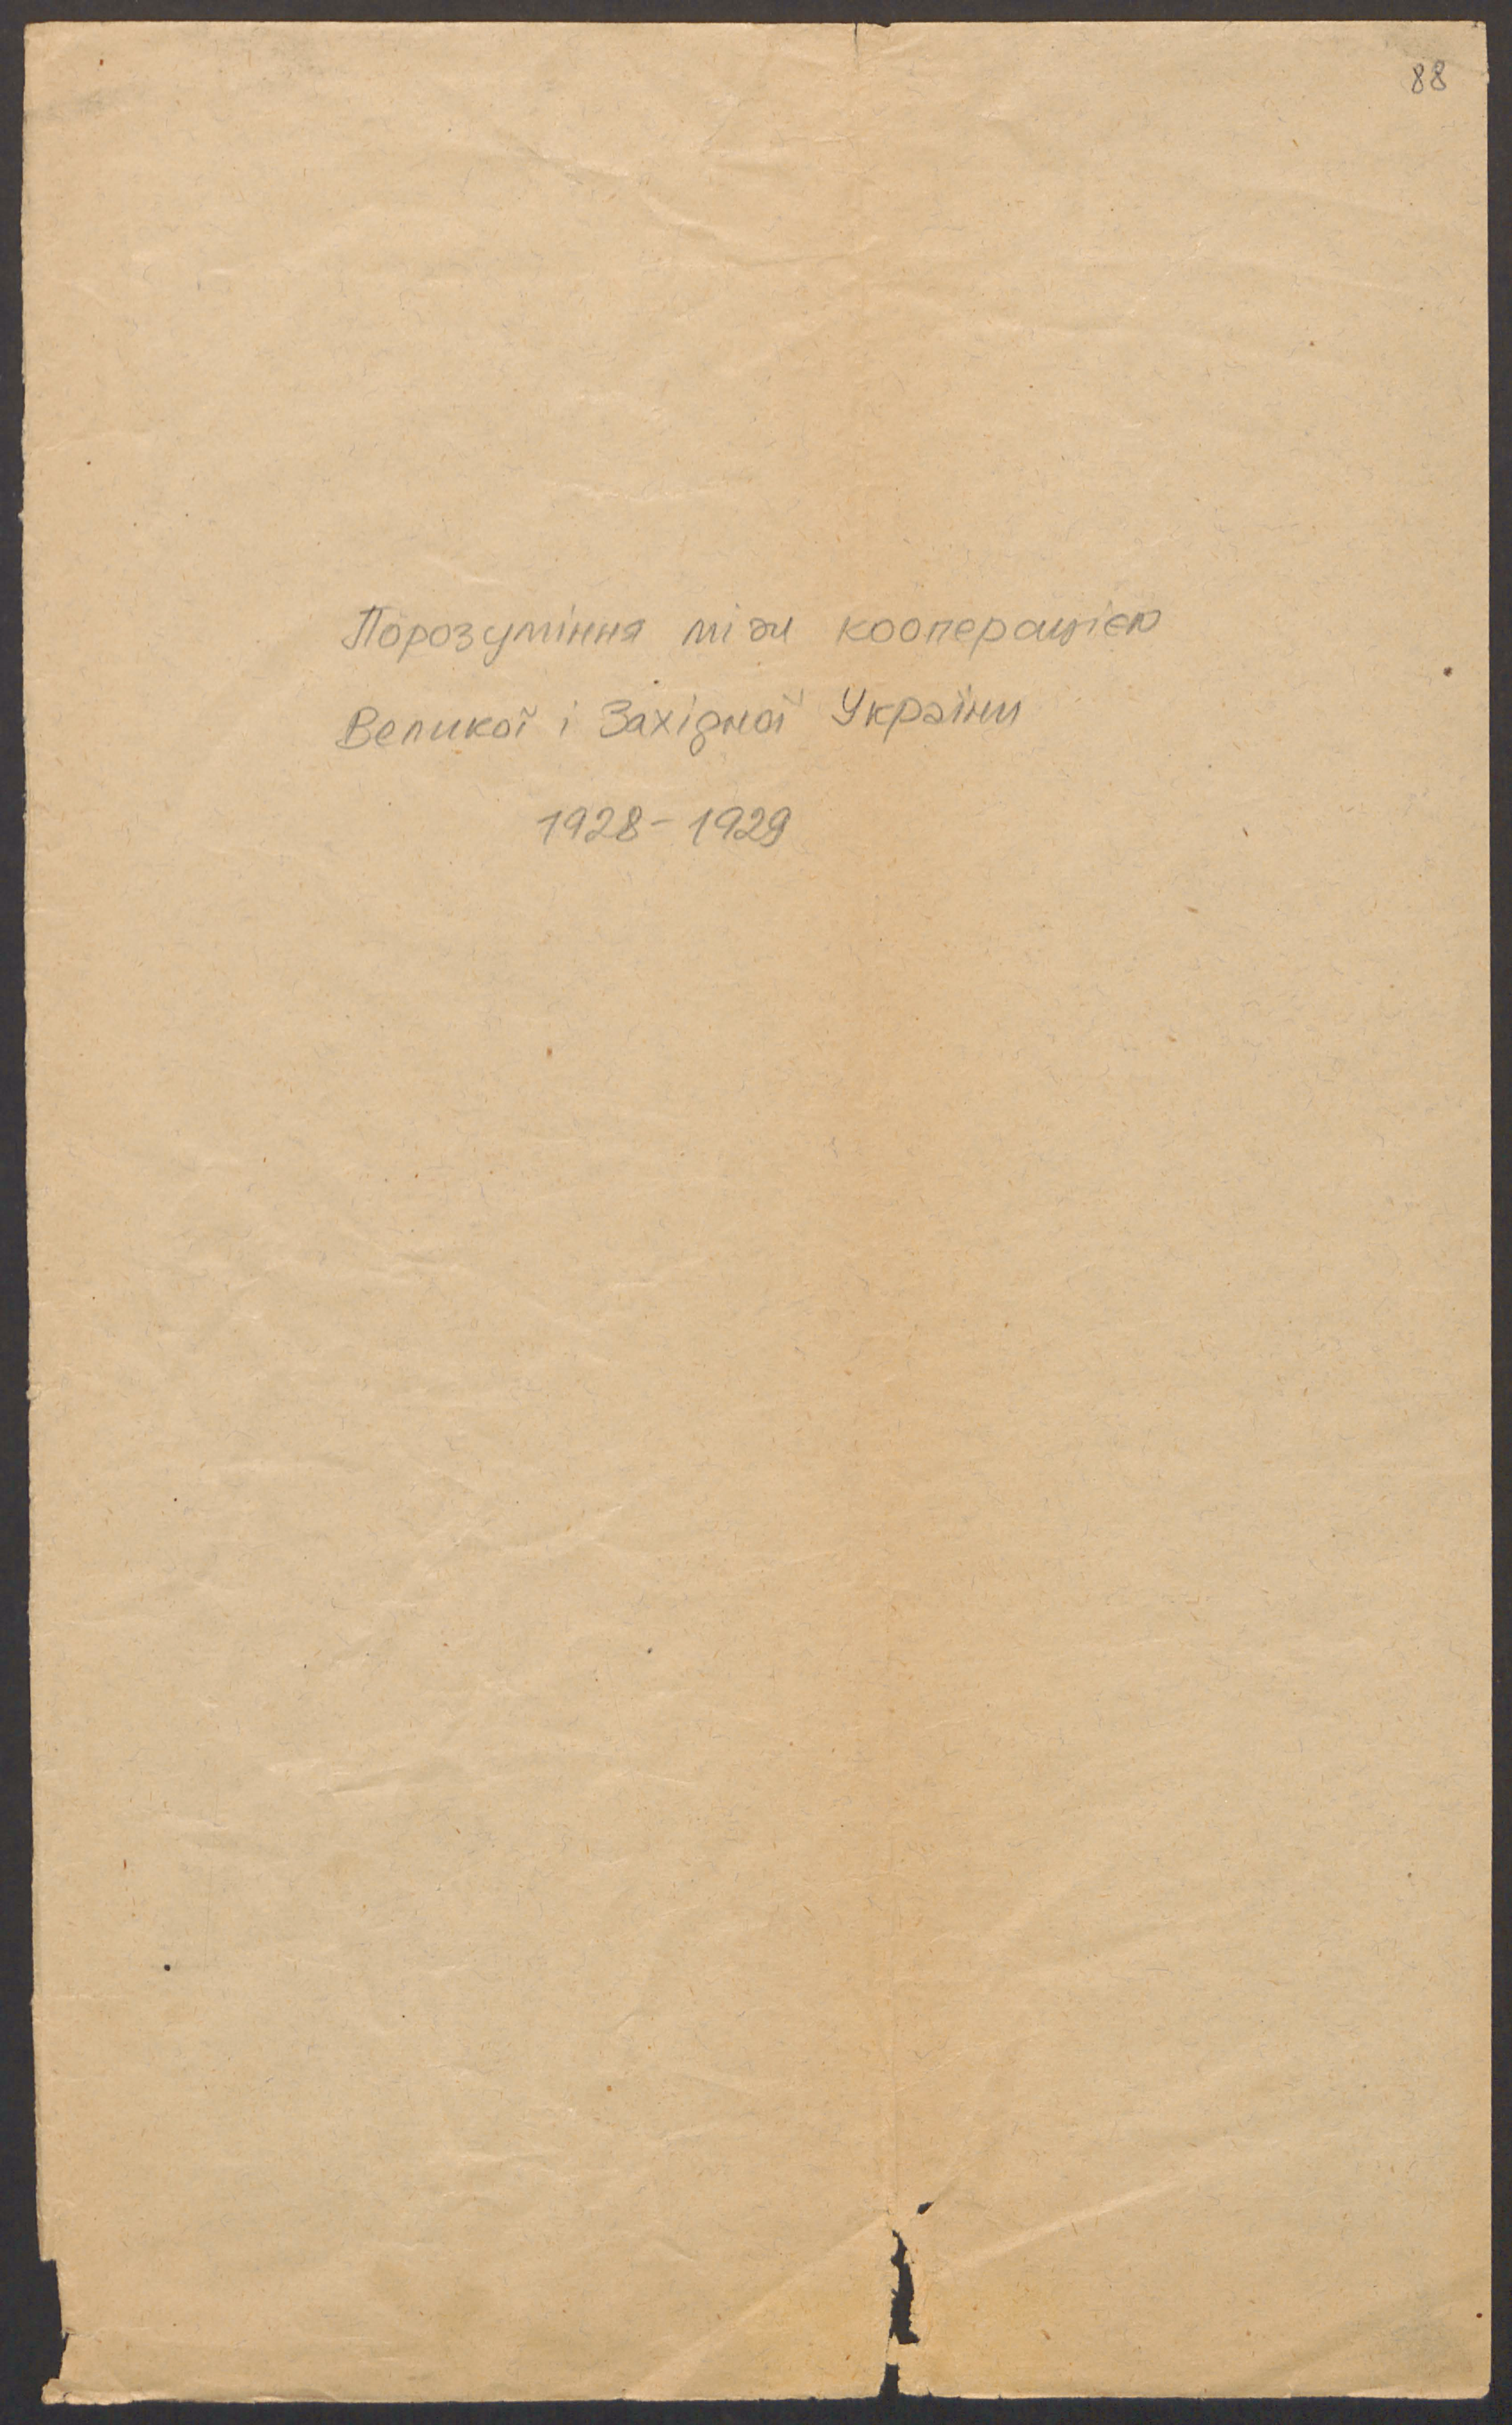 88
Порозуміння між кооперацією
Великої і Західної Україні
1928-1929